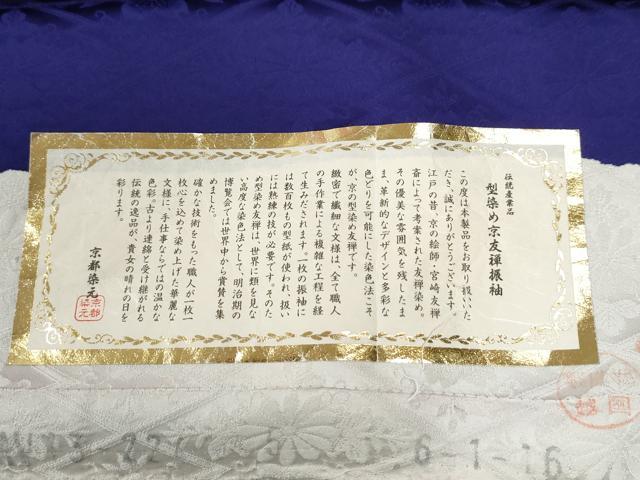 伝統産業品
型染め京友禅振袖
この度は本製品をお取り扱いいた
だき、誠にありがとうございます。
江戸の昔、京の絵師・宮崎友禅
斎によって考案された友禅染め。
その優美な雰囲気を残したま
ま、革新的なデザインと多彩な
色どりを可能にした染色法こそ
が、京の型染め友禅です。
緻密で繊細な文様は、全て職人
の手作業による複雑な工程を経
て生みだされます。一枚の振袖に
は数百枚もの型紙が使われ、扱い
には熟練の技が必要です。そのた
め型染め友禅は、世界に類を見な
い高度な染色法として、明治期の
博覧会では世界中から賞賛を集
めました。
確かな技術をもった職人が一枚一
枚心を込めて染め上げた華麗な
文様に、手仕事ならではの温かな
色彩。古より連綿と受け継がれる
伝統の逸品が、貴女の晴れの日を
彩ります。
京都染元
京都
染元
6-1-16